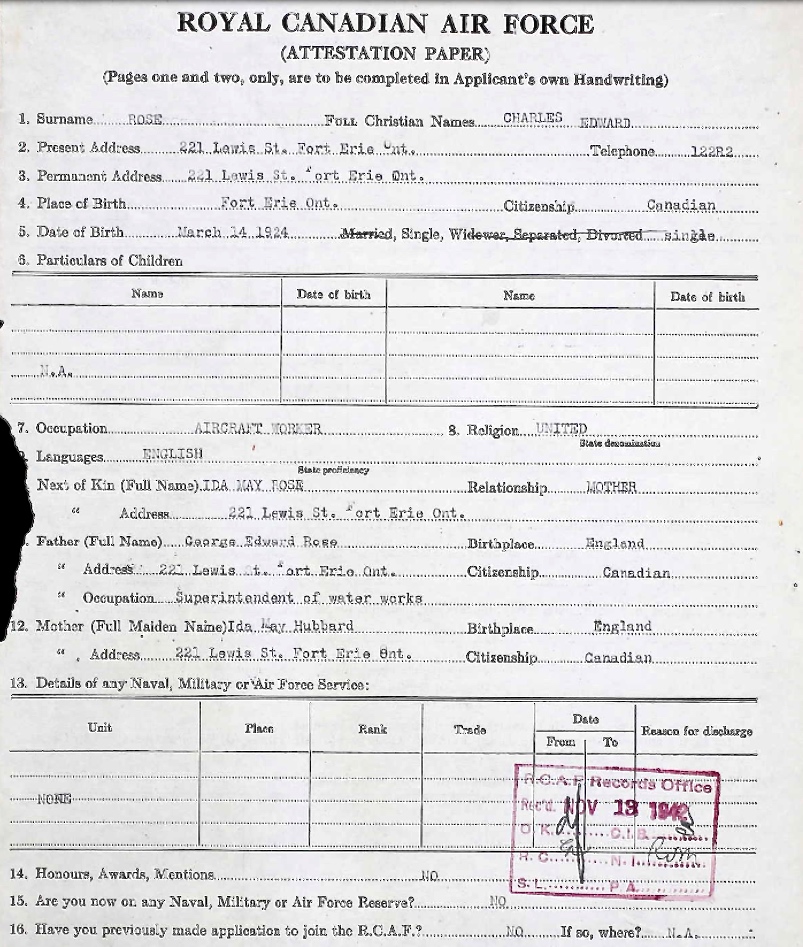 ROYAL CANADIAN AIR FORCE
(ATTESTATION PAPER)
(Pages one and two, only, are to be completed in Applicant's own Handwriting)
1. Surname ROSE Full Christian Names CHARLES EDWARD
2. Present Address 221 Lewis St. Fort Erie Ont. Telephone 122R2
3. Permanent Address 221 Lewis St. Fort Erie Ont.
4. Place of Birth Fort Erie Ont. Citizenship Canadian
5. Date of Birth March 14 1924 Married, Single, Widower, Separated, Divorced single
6. Particulars of Children
Name Date of birth Name Date of birth
N.A.
7. Occupation AIRCRAFT WORKER 8. Religion UNITED
State denomination
Languages ENGLISH
State proficiency
Next of Kin (Full Name) IDA MAY ROSE Relationship MOTHER
" Address 221 Lewis St. Fort Erie Ont.
Father (Full Name) George Edward Rose Birthplace England
" Address 221 Lewis St. Fort Erie Ont. Citizenship Canadian
" Occupation Superintendent of water works
12. Mother (Full Maiden Name) Ida May Hubbard Birthplace England
" Address 221 Lewis St. Fort Erie Ont. Citizenship Canadian
13. Details of any Naval, Military or Air Force Service:
Unit Place Rank Trade Date Reason for discharge
From To
NONE
R.C.A.F. Records Office
Rec'd. NOV 13 1942
O.K. C.I.B.
H.C. N.I.
S.L. P.A.
14. Honours, Awards, Mentions NO
15. Are you now on any Naval, Military or Air Force Reserve? NO
16. Have you previously made application to join the R.C.A.F.? NO If so, where? N.A.